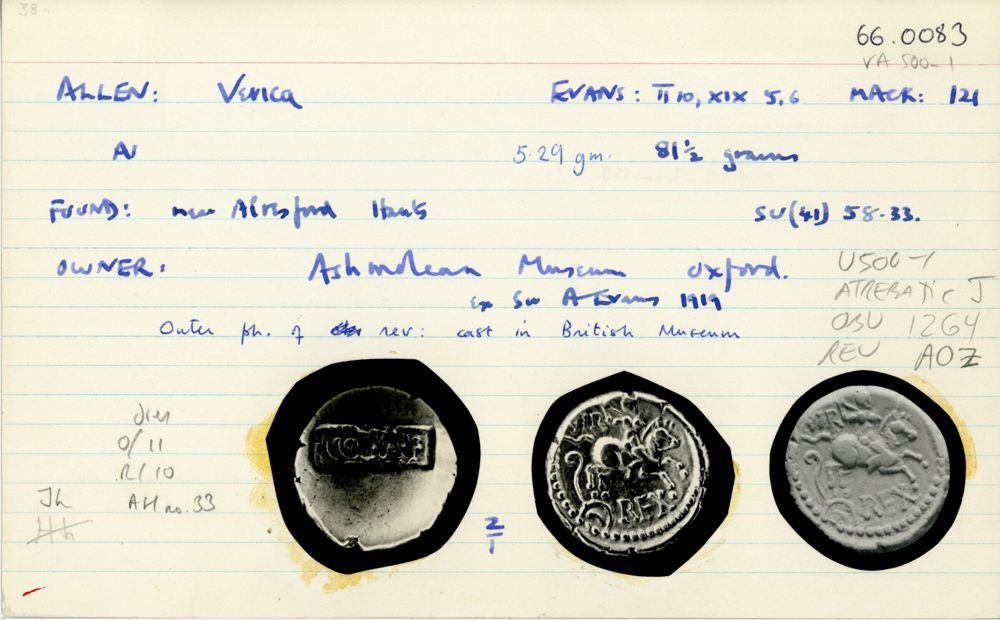 38.
66.0083
VA 500-1
ALLEN: Verica EVANS: II 10, XIX 5,6 MACK: 121
AV 5.29 gm. 81½ grains
FOUND: near Alresford Hants SU(41) 58.33.
OWNER: Ashmolean Museum Oxford.
ex Sir A Evans 1919
Outer ph. of rev: cast in British Museum
U500-1
ATREBATIC J
OBV 1264
REV AOZ
dies
O/11
R/10
AH no. 33
COM·F
VIR
REX
VIR
REX
2
1